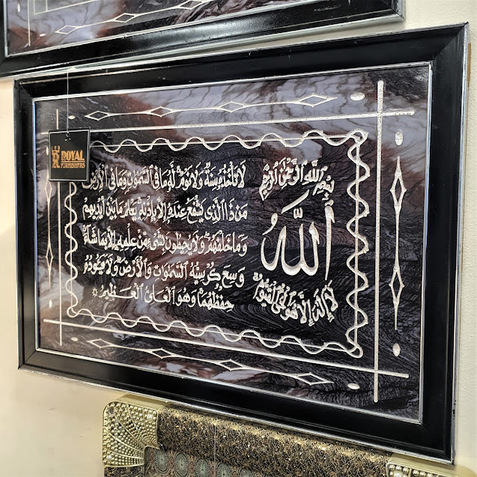 بسم الله الرحمن الرحيم
الله
لا اله الا هو الحي القيوم
لا تاخذه سنة ولا نوم له ما في السموت وما في الارض
من ذا الذي يشفع عنده الا باذنه يعلم ما بين ايديهم
وما خلفهم ولا يحيطون بشئ من علمه الا بما شاء
وسع كرسيه السموات والارض ولا يؤده
حفظهما وهو العلي العظيم
ROYAL